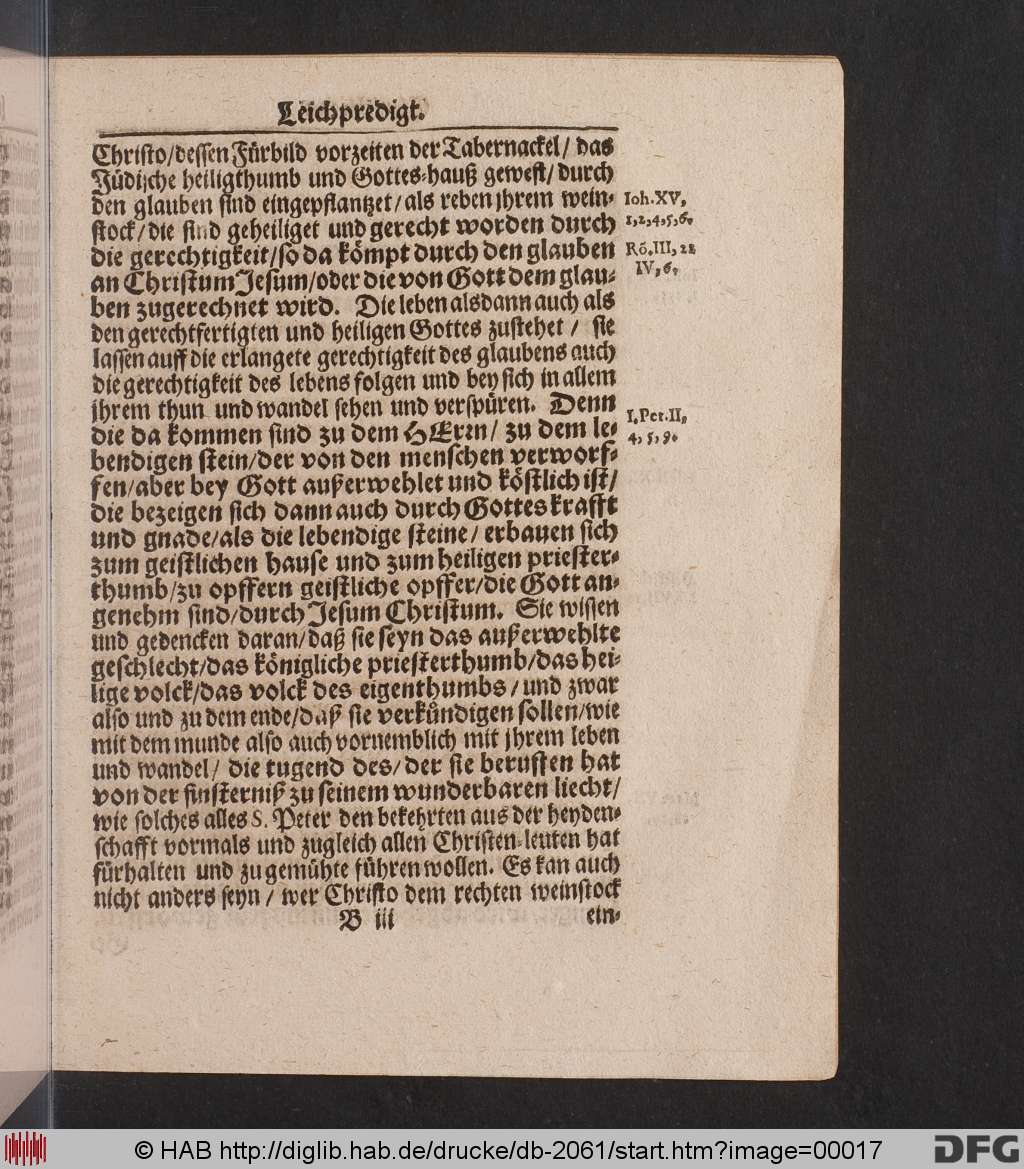 Leichpredigt.
Christo/dessen Fürbild vorzeiten der Tabernackel/ das
Jüdische heiligthumb und Gottes-hauß gewest/ durch
den glauben sind eingepflantzet/ als reben jhrem wein-
stock/ die sind geheiliget und gerecht worden durch
die gerechtigkeit/ so da kömpt durch den glauben
an Christum Jesum/oder die von Gott dem glau-
ben zugerechnet wird. Die leben alsdann auch als
den gerechtfertigten und heiligen Gottes zustehet / sie
lassen auff die erlangete gerechtigkeit des glaubens auch
die gerechtigkeit des lebens folgen und bey sich in allem
jhrem thun und wandel sehen und verspüren. Denn
die da kommen sind zu dem HErrn/ zu dem le-
bendigen stein/der von den menschen verworf-
fen/aber bey Gott außerwehlet und köstlich ist/
die bezeigen sich dann auch durch Gottes krafft
und gnade/als die lebendige steine/ erbauen sich
zum geistlichen hause und zum heiligen priester-
thumb/zu opffern geistliche opffer/die Gott an-
genehm sind/durch Jesum Christum. Sie wissen
und gedencken daran/daß sie seyn das außerwehlte
geschlecht/das königliche priesterthumb/das hei-
lige volck/das volck des eigenthumbs / und zwar
also und zu dem ende/daß sie verkündigen sollen/wie
mit dem munde also auch vornemblich mit jhrem leben
und wandel/ die tugend des/ der sie beruffen hat
von der finsterniß zu seinem wunderbaren liecht/
wie solches alles S. Peter den bekehrten aus der heyden-
schafft vormals und zugleich allen Christen-leuten hat
fürhalten und zu gemühte führen wollen. Es kan auch
nicht anders seyn / wer Christo dem rechten weinstock
B iii ein-
Ioh. XV,
1,2,4,5,6.
Rö. III, 22
IV, 6.
I. Pet. II,
4, 5, 9.
© HAB http://diglib.hab.de/drucke/db-2061/start.htm?image=00017
DFG